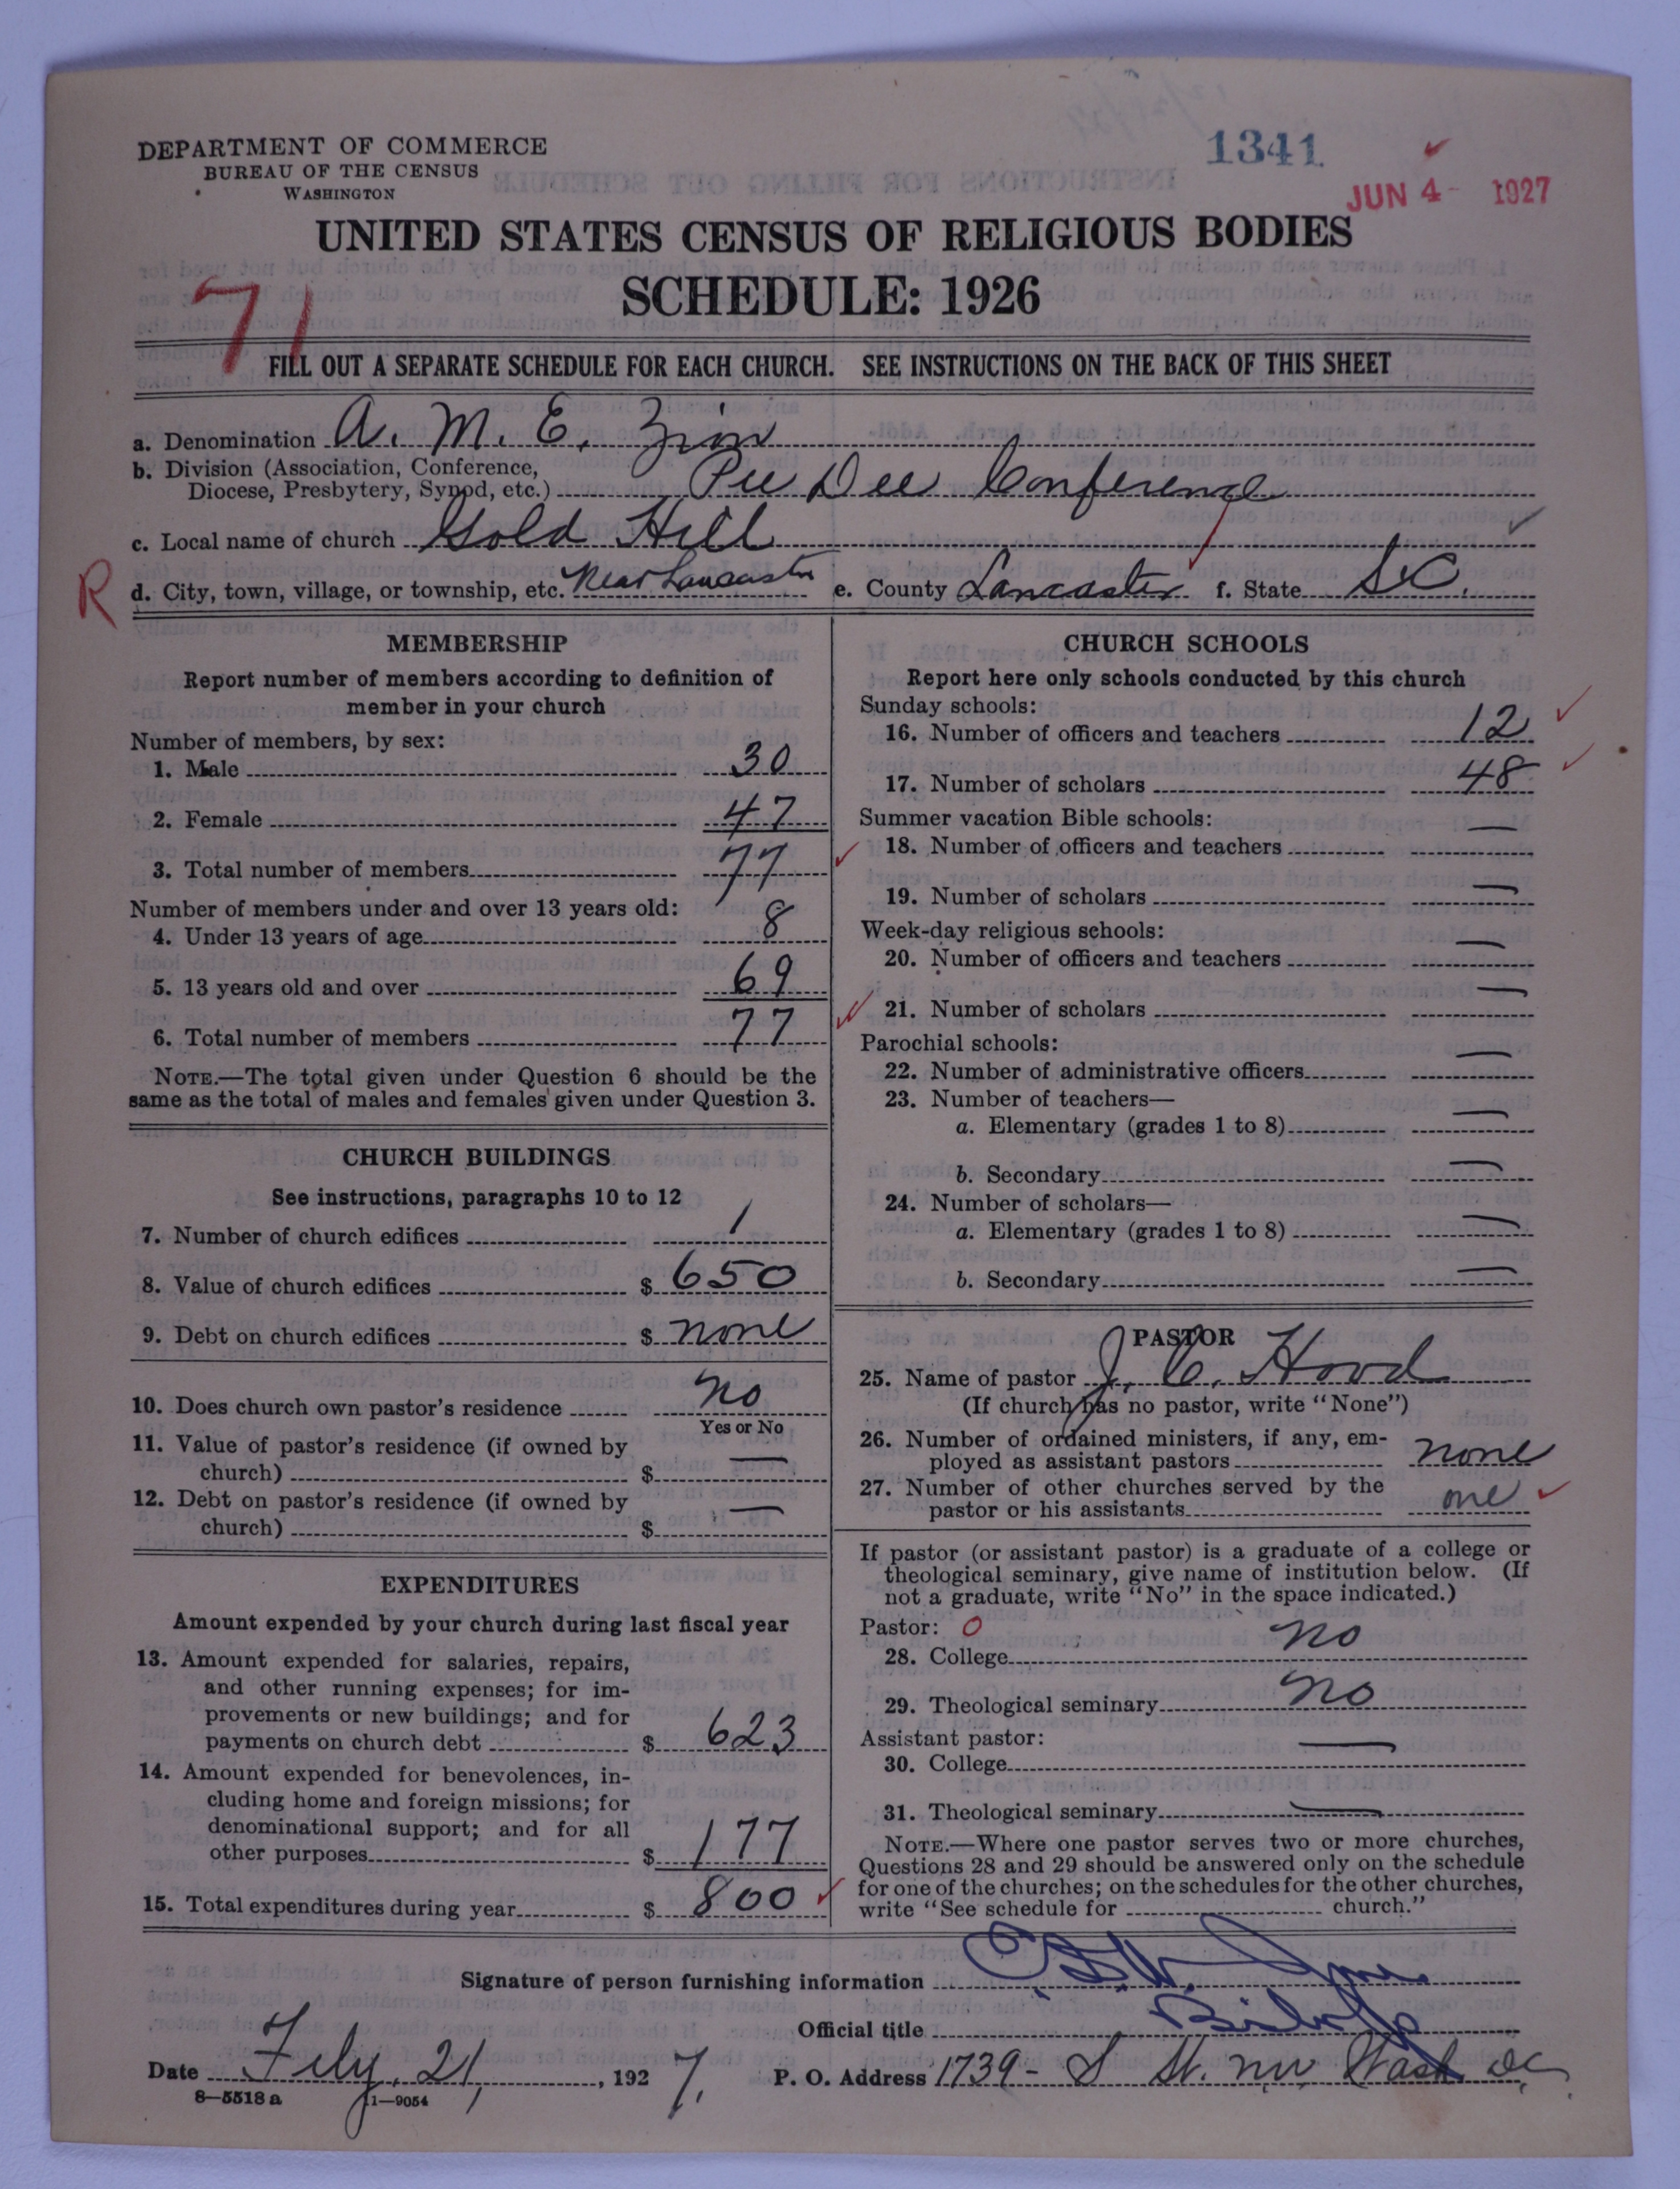 DEPARTMENT OF COMMERCE
BUREAU OF THE CENSUS
WASHINGTON
1341
JUN 4 - 1927
UNITED STATES CENSUS OF RELIGIOUS BODIES
SCHEDULE: 1926
71
FILL OUT A SEPARATE SCHEDULE FOR EACH CHURCH. SEE INSTRUCTIONS ON THE BACK OF THIS SHEET
a. Denomination A. M. E. Zion
b. Division (Association, Conference,
Diocese, Presbytery, Synod, etc.) Pee Dee Conference
c. Local name of church Gold Hill
R d. City, town, village, or township, etc. Near Lancaster e. County Lancaster f. State S.C.
MEMBERSHIP
Report number of members according to definition of
member in your church
Number of members, by sex:
1. Male 30
2. Female 47
3. Total number of members 77
Number of members under and over 13 years old:
4. Under 13 years of age 8
5. 13 years old and over 69
6. Total number of members 77
NOTE.—The total given under Question 6 should be the
same as the total of males and females given under Question 3.
CHURCH BUILDINGS
See instructions, paragraphs 10 to 12
7. Number of church edifices 1
8. Value of church edifices $ 650
9. Debt on church edifices $ none
10. Does church own pastor's residence no
Yes or No
11. Value of pastor's residence (if owned by
church) $ —
12. Debt on pastor's residence (if owned by
church) $ —
EXPENDITURES
Amount expended by your church during last fiscal year
13. Amount expended for salaries, repairs,
and other running expenses; for im-
provements or new buildings; and for
payments on church debt $ 623
14. Amount expended for benevolences, in-
cluding home and foreign missions; for
denominational support; and for all
other purposes $ 177
15. Total expenditures during year $ 800
CHURCH SCHOOLS
Report here only schools conducted by this church
Sunday schools:
16. Number of officers and teachers 12
17. Number of scholars 48
Summer vacation Bible schools:
18. Number of officers and teachers —
19. Number of scholars —
Week-day religious schools:
20. Number of officers and teachers —
21. Number of scholars —
Parochial schools:
22. Number of administrative officers —
23. Number of teachers—
a. Elementary (grades 1 to 8) —
b. Secondary —
24. Number of scholars—
a. Elementary (grades 1 to 8) —
b. Secondary —
PASTOR
25. Name of pastor J. C. Hood
(If church has no pastor, write "None")
26. Number of ordained ministers, if any, em-
ployed as assistant pastors none
27. Number of other churches served by the
pastor or his assistants one
If pastor (or assistant pastor) is a graduate of a college or
theological seminary, give name of institution below. (If
not a graduate, write "No" in the space indicated.)
Pastor: O
28. College no
29. Theological seminary no
Assistant pastor:
30. College —
31. Theological seminary —
NOTE.—Where one pastor serves two or more churches,
Questions 28 and 29 should be answered only on the schedule
for one of the churches; on the schedules for the other churches,
write "See schedule for church."
Signature of person furnishing information
Official title Bishop
Date Feby. 21, 1927. P. O. Address 1739 - S St. NW Wash DC
8—5518 a 11—9054